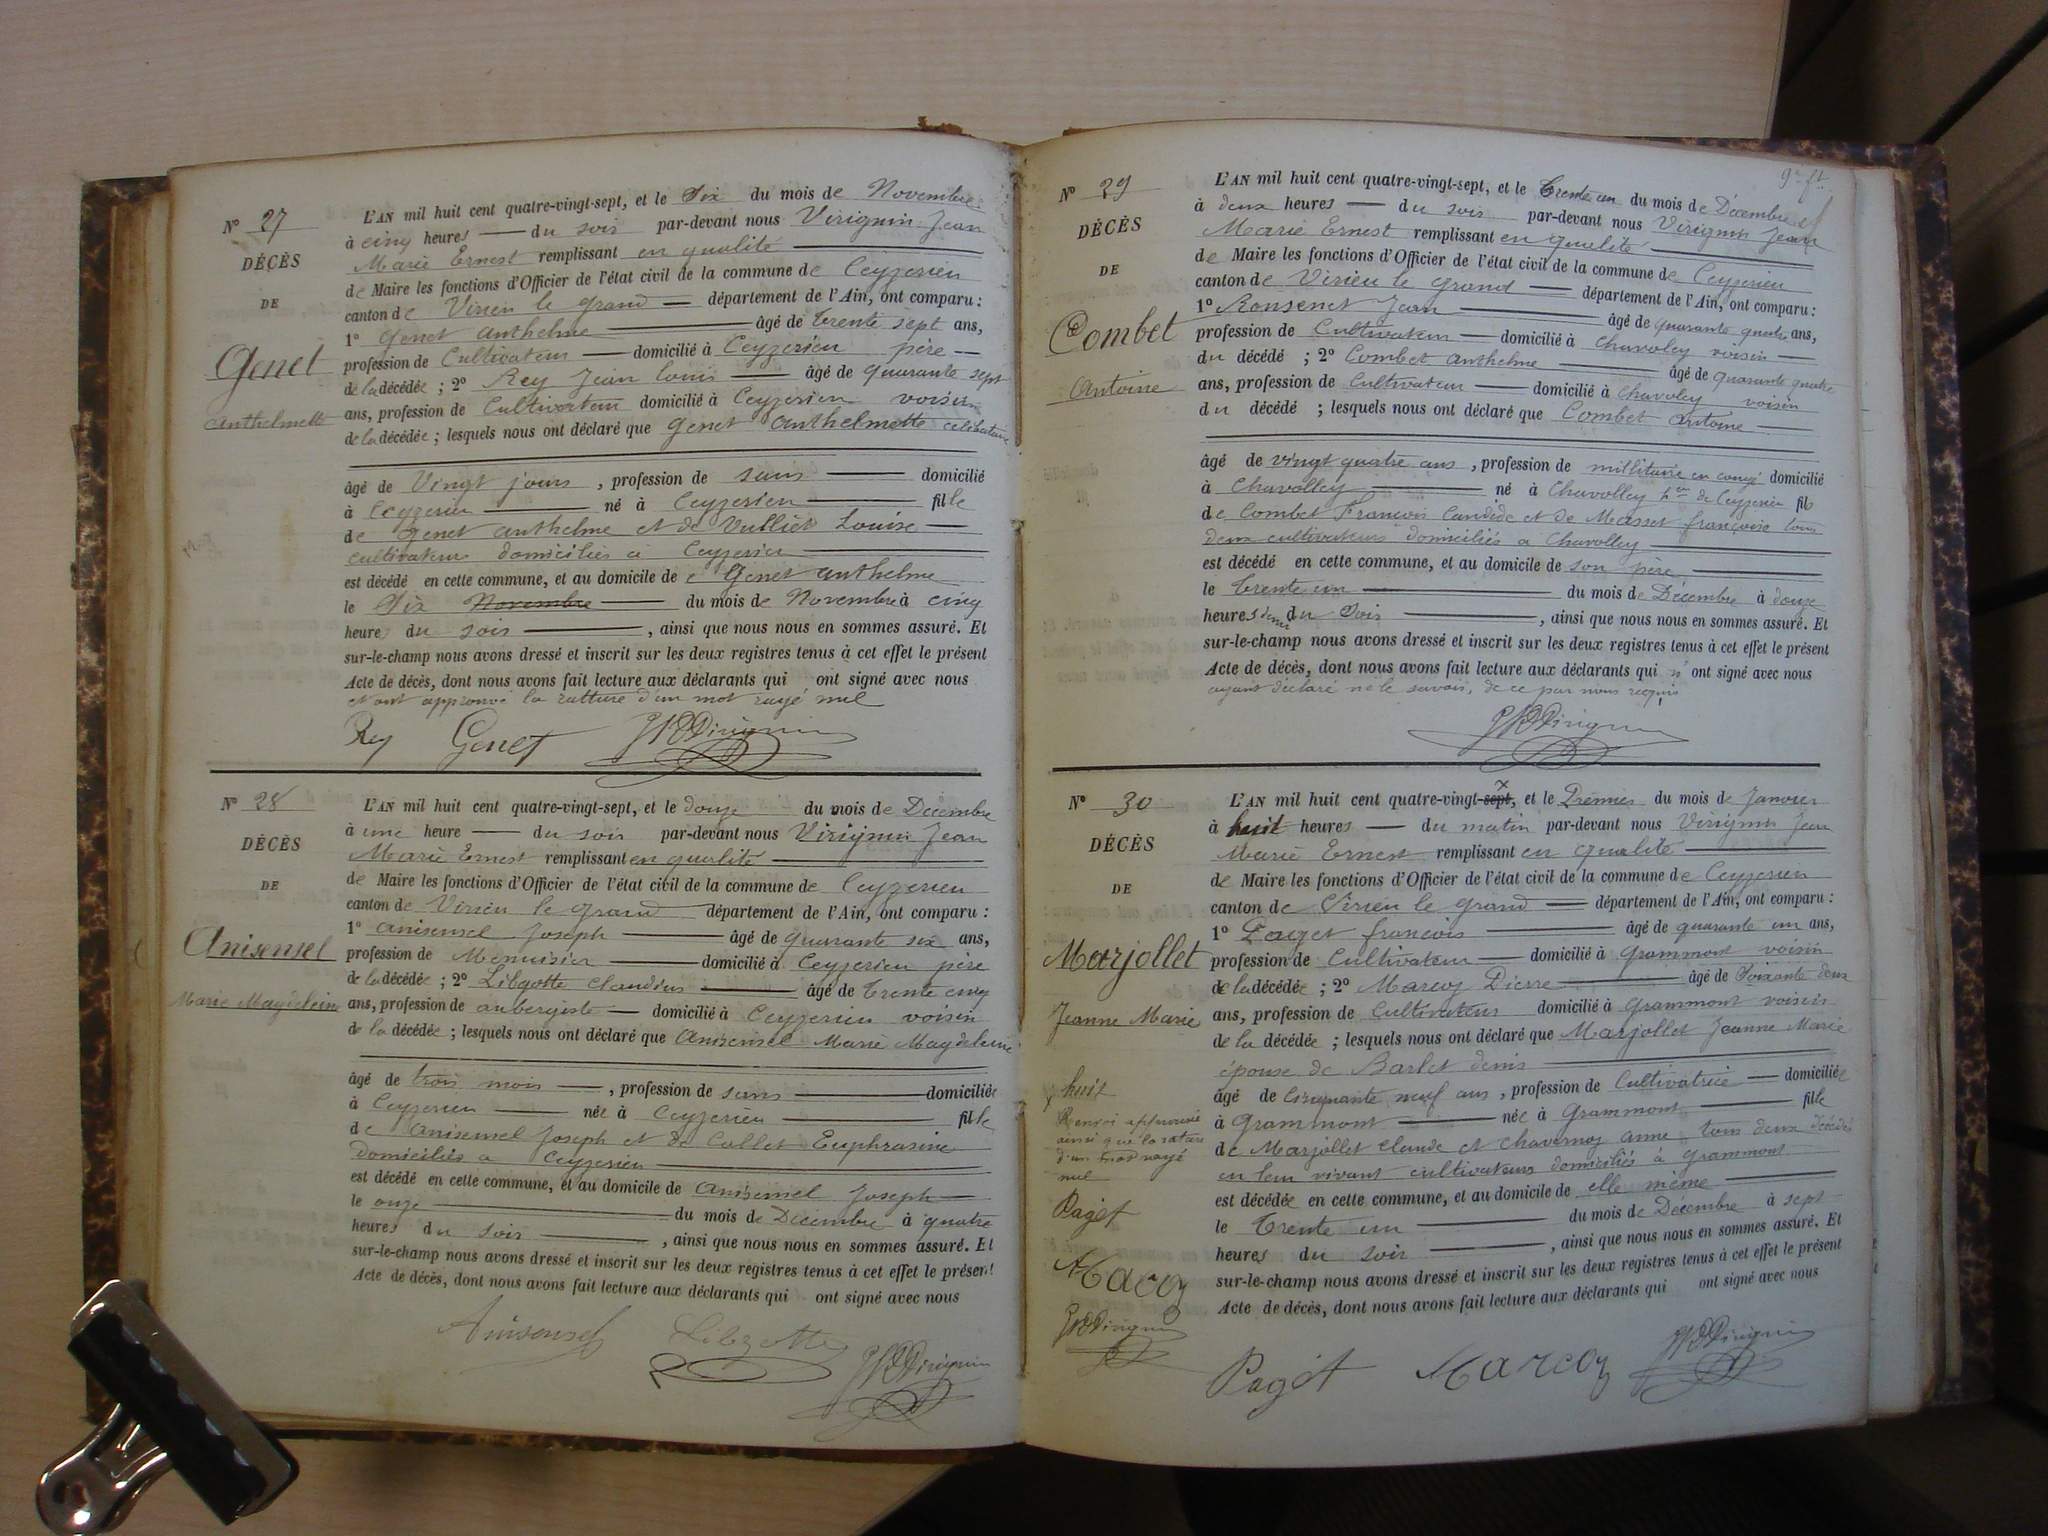 N° 27
DÉCÈS
DE
Genet
Anthelmette
L'AN mil huit cent quatre-vingt-sept, et le Six du mois de Novembre
à cinq heures du soir par-devant nous Virignin Jean
Marie Ernest remplissant en qualité
de Maire les fonctions d'Officier de l'état civil de la commune de Ceyzerieu
canton de Virieu le grand département de l'Ain, ont comparu :
1° Genet Anthelme âgé de trente sept ans,
profession de Cultivateur domicilié à Ceyzerieu père
de la décédée ; 2° Rey Jean Louis âgé de quarante sept
ans, profession de Cultivateur domicilié à Ceyzerieu voisin
de la décédée ; lesquels nous ont déclaré que Genet Anthelmette célibataire
âgé de Vingt jours , profession de sans domicilié
à Ceyzerieu né à Ceyzerieu fille
de Genet Anthelme et de Vulliet Louise
cultivateurs domiciliés à Ceyzerieu
est décédé en cette commune, et au domicile de Genet Anthelme
le Six Novembre du mois de Novembre à cinq
heures du soir , ainsi que nous nous en sommes assuré. Et
sur-le-champ nous avons dressé et inscrit sur les deux registres tenus à cet effet le présent
Acte de décès, dont nous avons fait lecture aux déclarants qui ont signé avec nous
et ont approuvé la ratture d'un mot rayé nul
Rey Genet JME Virignin
N° 28
DÉCÈS
DE
Anisensel
Marie Magdeleine
L'AN mil huit cent quatre-vingt-sept, et le douze du mois de Décembre
à une heure du soir par-devant nous Virignin Jean
Marie Ernest remplissant en qualité
de Maire les fonctions d'Officier de l'état civil de la commune de Ceyzerieu
canton de Virieu le grand département de l'Ain, ont comparu :
1° Anisensel Joseph âgé de quarante six ans,
profession de Menuisier domicilié à Ceyzerieu père
de la décédée ; 2° Libgotte Claudius âgé de trente cinq
ans, profession de aubergiste domicilié à Ceyzerieu voisin
de la décédée ; lesquels nous ont déclaré que Anisensel Marie Magdeleine
âgé de trois mois , profession de sans domiciliée
à Ceyzerieu née à Ceyzerieu fille
de Anisensel Joseph et de Collet Euphrasine
domiciliés à Ceyzerieu
est décédé en cette commune, et au domicile de Anisensel Joseph
le onze du mois de Décembre à quatre
heures du soir , ainsi que nous nous en sommes assuré. Et
sur-le-champ nous avons dressé et inscrit sur les deux registres tenus à cet effet le présent
Acte de décès, dont nous avons fait lecture aux déclarants qui ont signé avec nous
Anisensel JME Virignin
N° 29
DÉCÈS
DE
Combet
Antoine
L'AN mil huit cent quatre-vingt-sept, et le Trente un du mois de Décembre
à deux heures du soir par-devant nous Virignin Jean
Marie Ernest remplissant en qualité
de Maire les fonctions d'Officier de l'état civil de la commune de Ceyzerieu
canton de Virieu le grand département de l'Ain, ont comparu :
1° Ronsenet Jean âgé de quarante quatre ans,
profession de Cultivateur domicilié à Chavoley voisin
du décédé ; 2° Combet Anthelme âgé de quarante quatre
ans, profession de Cultivateur domicilié à Chavoley voisin
du décédé ; lesquels nous ont déclaré que Combet Antoine
âgé de vingt quatre ans , profession de millitaire en congé domicilié
à Chavolley né à Chavolley hau de Ceyzerieu fils
de Combet François Candide et de Masset françoise tous
deux cultivateurs domiciliés à Chavolley
est décédé en cette commune, et au domicile de son père
le trente un du mois de Décembre à douze
heures demi du Soir , ainsi que nous nous en sommes assuré. Et
sur-le-champ nous avons dressé et inscrit sur les deux registres tenus à cet effet le présent
Acte de décès, dont nous avons fait lecture aux déclarants qui n'ont signé avec nous
ayant déclaré ne le savoir, de ce par nous requis
JME Virignin
N° 30
DÉCÈS
DE
Marjollet
Jeanne Marie
x huit
Renvoi approuvé
ainsi que la rature
d'un mot rayé
nul
Paget
Marcoz
JME Virignin
L'AN mil huit cent quatre-vingt-sept, et le Premier du mois de Janvier
à huit heures du matin par-devant nous Virignin Jean
Marie Ernest remplissant en qualité
de Maire les fonctions d'Officier de l'état civil de la commune de Ceyzerieu
canton de Virieu le grand département de l'Ain, ont comparu :
1° Paget françois âgé de quarante un ans,
profession de Cultivateur domicilié à Grammont voisin
de la décédée ; 2° Marcoz Pierre âgé de Soixante deux
ans, profession de Cultivateur domicilié à Grammont voisin
de la décédée ; lesquels nous ont déclaré que Marjollet Jeanne Marie
épouse de Barlet denis
âgé de cinquante neuf ans , profession de Cultivatrice domiciliée
à Grammont née à Grammont fille
de Marjollet Claude et Chavernoz anne tous deux décédés
en leur vivant cultivateurs domiciliés à Grammont
est décédée en cette commune, et au domicile de elle même
le Trente un du mois de Décembre à sept
heures du soir , ainsi que nous nous en sommes assuré. Et
sur-le-champ nous avons dressé et inscrit sur les deux registres tenus à cet effet le présent
Acte de décès, dont nous avons fait lecture aux déclarants qui ont signé avec nous
Paget Marcoz JME Virignin